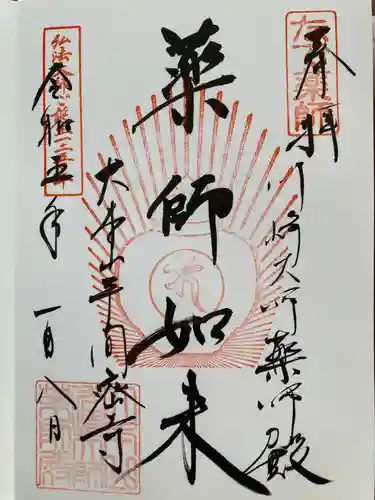 奉拝
なで薬師
川崎大師薬師殿
薬師如来
大本山平間密寺
令和五年
一月八日